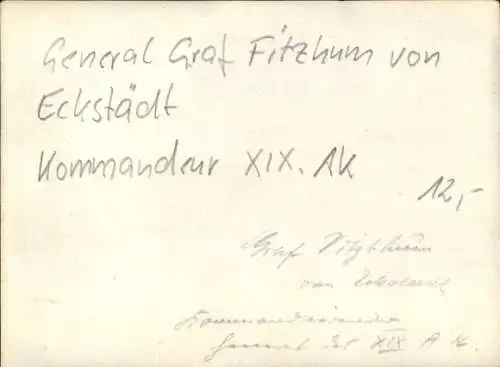 General Graf Fitzhum von
Eckstädt
Kommandeur XIX. AK
12,-
Graf Vitzthum
von Eckstaedt
Kommandierender
General des XIX A K.